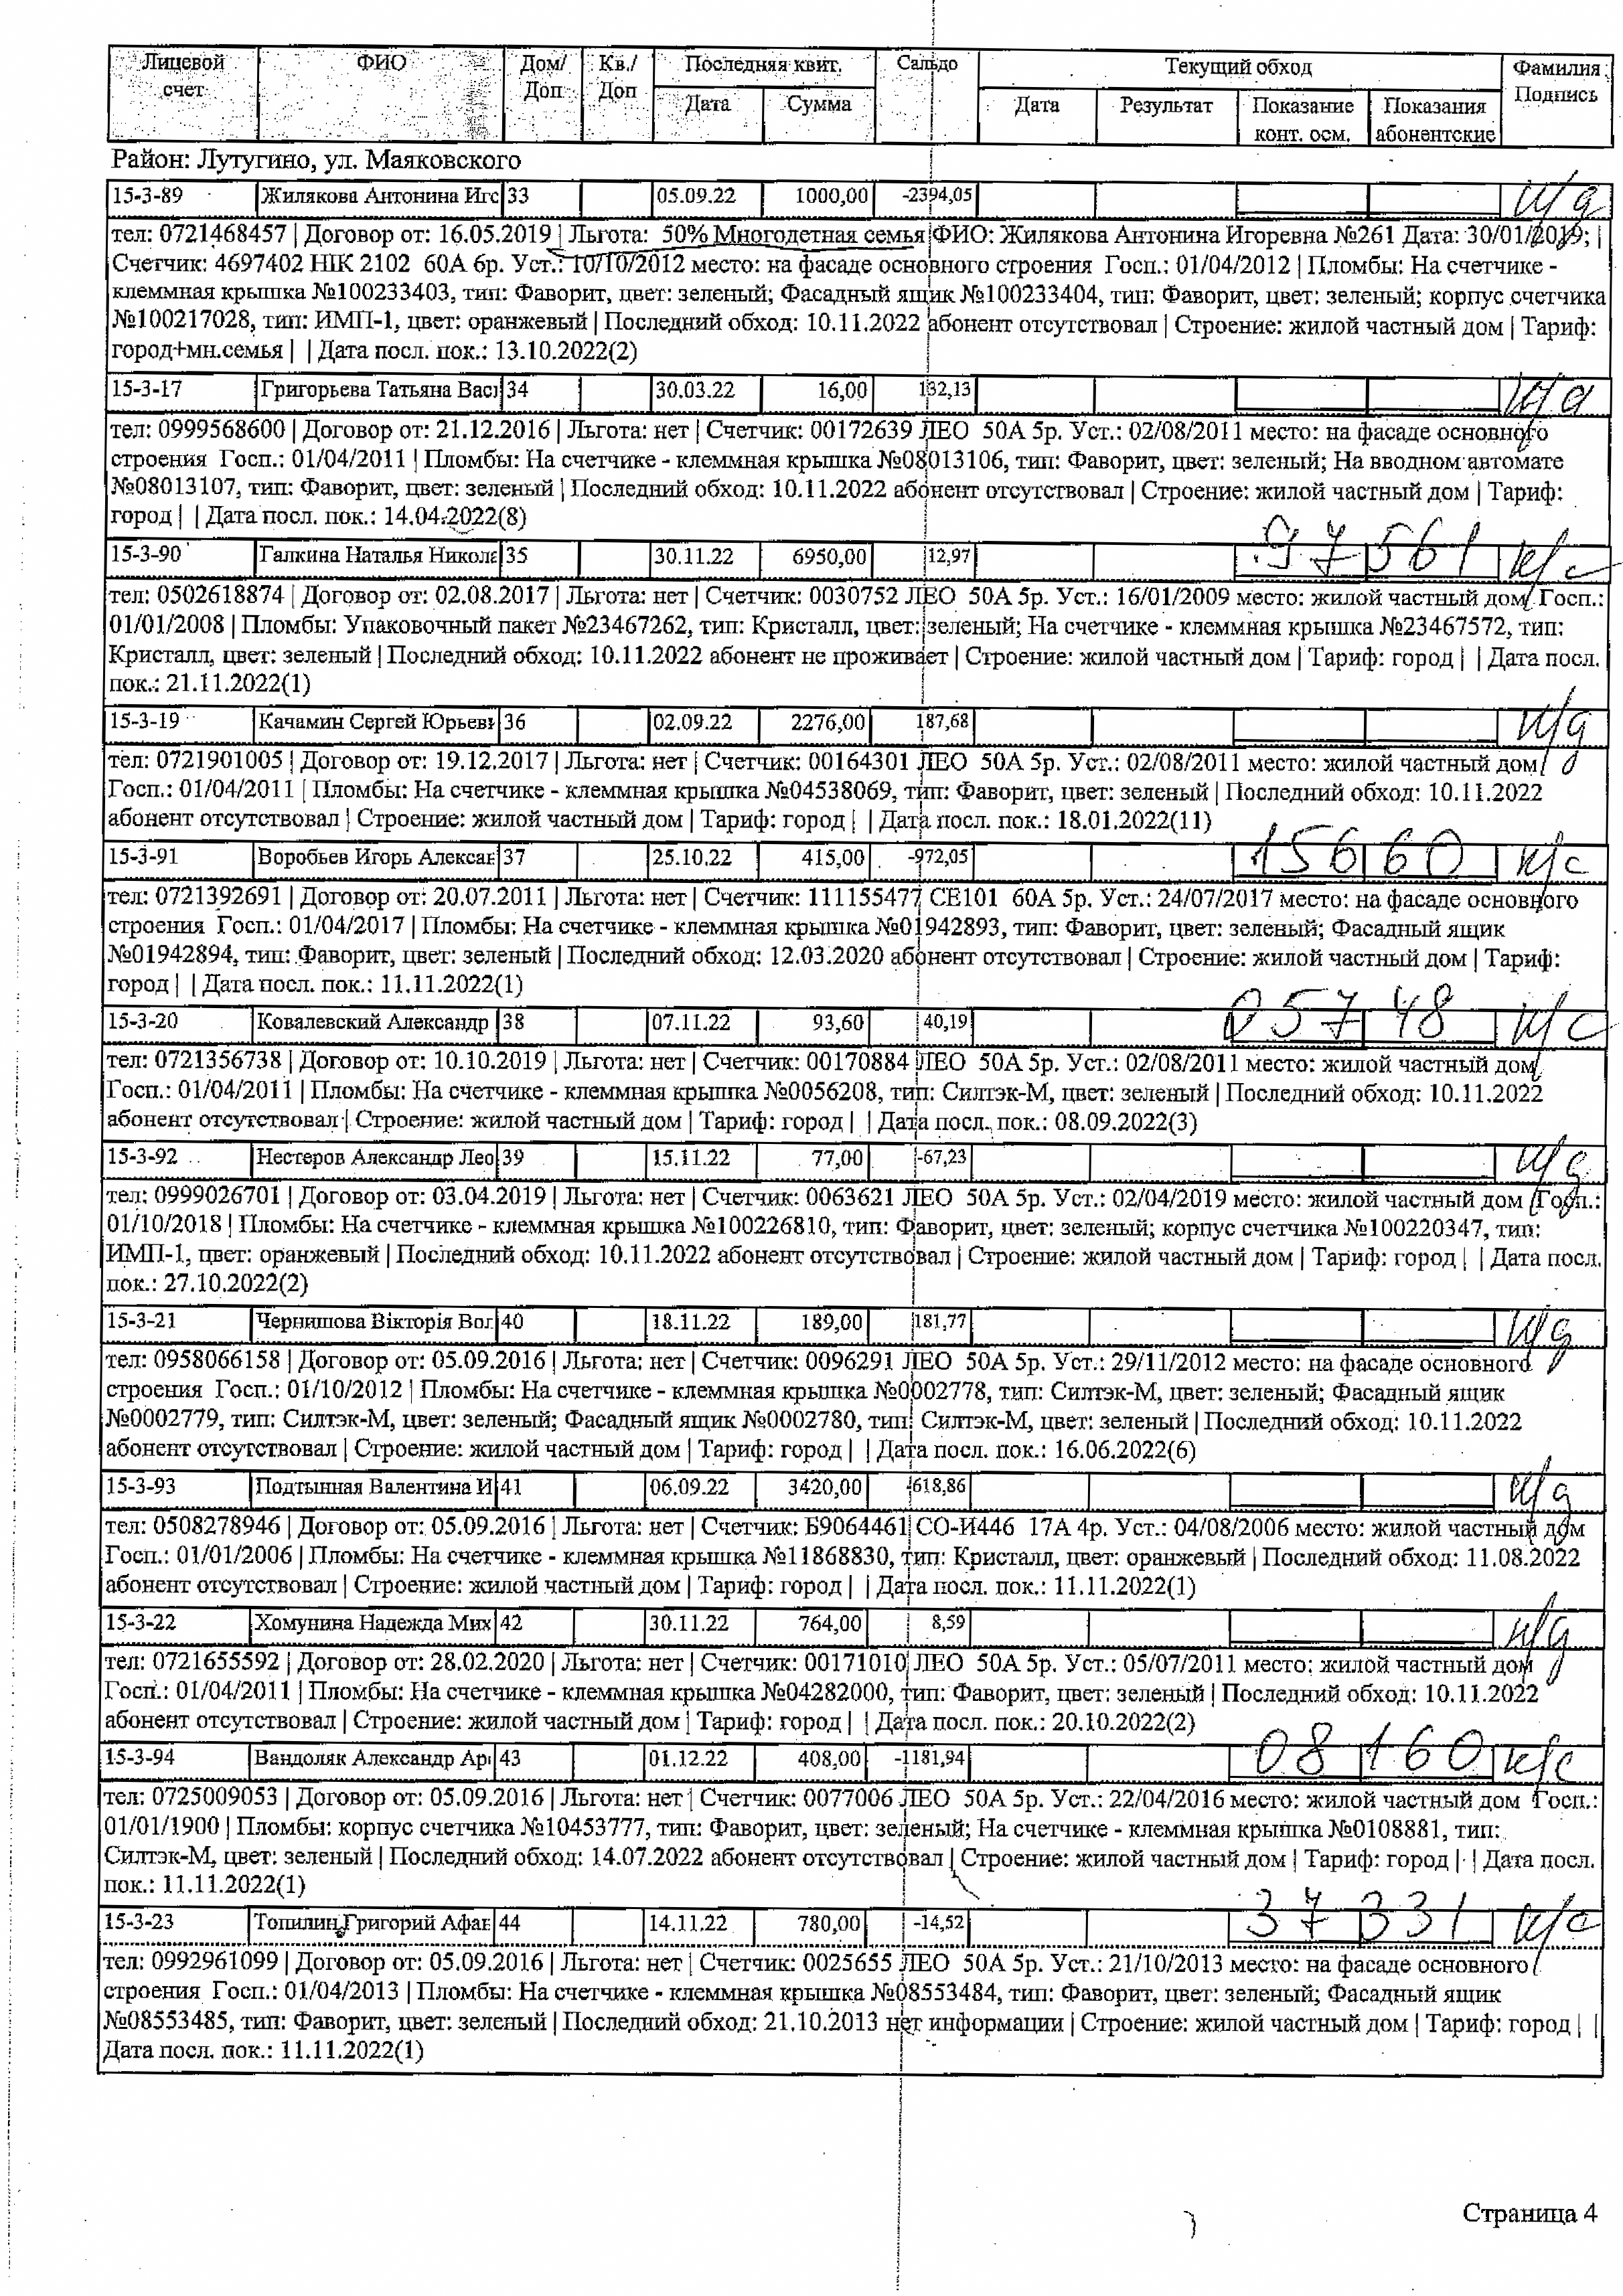 Лицевой счет ФИО Дом/ Доп Кв./ Доп Последняя квит. Сальдо Текущий обход Фамилия Подпись
Дата Сумма Дата Результат Показание конт. осм. Показания абонентские
Район: Лутугино, ул. Маяковского
15-3-89 Жилякова Антонина Иго 33 05.09.22 1000,00 -2394,05 н/д
тел: 0721468457 | Договор от: 16.05.2019 | Льгота: 50% Многодетная семья ФИО: Жилякова Антонина Игоревна №261 Дата: 30/01/2019; |
Счетчик: 4697402 НІК 2102 60А 6р. Уст.: 10/10/2012 место: на фасаде основного строения Госп.: 01/04/2012 | Пломбы: На счетчике -
клеммная крышка №100233403, тип: Фаворит, цвет: зеленый; Фасадный ящик №100233404, тип: Фаворит, цвет: зеленый; корпус счетчика
№100217028, тип: ИМП-1, цвет: оранжевый | Последний обход: 10.11.2022 абонент отсутствовал | Строение: жилой частный дом | Тариф:
город+мн.семья | | Дата посл. пок.: 13.10.2022(2)
15-3-17 Григорьева Татьяна Васи 34 30.03.22 16,00 132,13 н/д
тел: 0999568600 | Договор от: 21.12.2016 | Льгота: нет | Счетчик: 00172639 ЛЕО 50А 5р. Уст.: 02/08/2011 место: на фасаде основного
строения Госп.: 01/04/2011 | Пломбы: На счетчике - клеммная крышка №08013106, тип: Фаворит, цвет: зеленый; На вводном автомате
№08013107, тип: Фаворит, цвет: зеленый | Последний обход: 10.11.2022 абонент отсутствовал | Строение: жилой частный дом | Тариф:
город | | Дата посл. пок.: 14.04.2022(8)
15-3-90 Галкина Наталья Никола 35 30.11.22 6950,00 12,97 97561 к/с
тел: 0502618874 | Договор от: 02.08.2017 | Льгота: нет | Счетчик: 0030752 ЛЕО 50А 5р. Уст.: 16/01/2009 место: жилой частный дом Госп.:
01/01/2008 | Пломбы: Упаковочный пакет №23467262, тип: Кристалл, цвет: зеленый; На счетчике - клеммная крышка №23467572, тип:
Кристалл, цвет: зеленый | Последний обход: 10.11.2022 абонент не проживает | Строение: жилой частный дом | Тариф: город | | Дата посл.
пок.: 21.11.2022(1)
15-3-19 Качамин Сергей Юрьеви 36 02.09.22 2276,00 187,68 н/д
тел: 0721901005 | Договор от: 19.12.2017 | Льгота: нет | Счетчик: 00164301 ЛЕО 50А 5р. Уст.: 02/08/2011 место: жилой частный дом
Госп.: 01/04/2011 | Пломбы: На счетчике - клеммная крышка №04538069, тип: Фаворит, цвет: зеленый | Последний обход: 10.11.2022
абонент отсутствовал | Строение: жилой частный дом | Тариф: город | | Дата посл. пок.: 18.01.2022(11)
15-3-91 Воробьев Игорь Алексан 37 25.10.22 415,00 -972,05 15660 к/с
тел: 0721392691 | Договор от: 20.07.2011 | Льгота: нет | Счетчик: 111155477 СЕ101 60А 5р. Уст.: 24/07/2017 место: на фасаде основного
строения Госп.: 01/04/2017 | Пломбы: На счетчике - клеммная крышка №01942893, тип: Фаворит, цвет: зеленый; Фасадный ящик
№01942894, тип: Фаворит, цвет: зеленый | Последний обход: 12.03.2020 абонент отсутствовал | Строение: жилой частный дом | Тариф:
город | | Дата посл. пок.: 11.11.2022(1)
15-3-20 Ковалевский Александр 38 07.11.22 93,60 40,19 05748 к/с
тел: 0721356738 | Договор от: 10.10.2019 | Льгота: нет | Счетчик: 00170884 ЛЕО 50А 5р. Уст.: 02/08/2011 место: жилой частный дом
Госп.: 01/04/2011 | Пломбы: На счетчике - клеммная крышка №0056208, тип: Силтэк-М, цвет: зеленый | Последний обход: 10.11.2022
абонент отсутствовал | Строение: жилой частный дом | Тариф: город | | Дата посл. пок.: 08.09.2022(3)
15-3-92 Нестеров Александр Лео 39 15.11.22 77,00 -67,23 н/д
тел: 0999026701 | Договор от: 03.04.2019 | Льгота: нет | Счетчик: 0063621 ЛЕО 50А 5р. Уст.: 02/04/2019 место: жилой частный дом Госп.:
01/10/2018 | Пломбы: На счетчике - клеммная крышка №100226810, тип: Фаворит, цвет: зеленый; корпус счетчика №100220347, тип:
ИМП-1, цвет: оранжевый | Последний обход: 10.11.2022 абонент отсутствовал | Строение: жилой частный дом | Тариф: город | | Дата посл.
пок.: 27.10.2022(2)
15-3-21 Чернишова Вікторія Вол 40 18.11.22 189,00 181,77 н/д
тел: 0958066158 | Договор от: 05.09.2016 | Льгота: нет | Счетчик: 0096291 ЛЕО 50А 5р. Уст.: 29/11/2012 место: на фасаде основного
строения Госп.: 01/10/2012 | Пломбы: На счетчике - клеммная крышка №0002778, тип: Силтэк-М, цвет: зеленый; Фасадный ящик
№0002779, тип: Силтэк-М, цвет: зеленый; Фасадный ящик №0002780, тип: Силтэк-М, цвет: зеленый | Последний обход: 10.11.2022
абонент отсутствовал | Строение: жилой частный дом | Тариф: город | | Дата посл. пок.: 16.06.2022(6)
15-3-93 Подтынная Валентина И 41 06.09.22 3420,00 -618,86 н/д
тел: 0508278946 | Договор от: 05.09.2016 | Льгота: нет | Счетчик: Б9064461 СО-И446 17А 4р. Уст.: 04/08/2006 место: жилой частный дом
Госп.: 01/01/2006 | Пломбы: На счетчике - клеммная крышка №11868830, тип: Кристалл, цвет: оранжевый | Последний обход: 11.08.2022
абонент отсутствовал | Строение: жилой частный дом | Тариф: город | | Дата посл. пок.: 11.11.2022(1)
15-3-22 Хомунина Надежда Мих 42 30.11.22 764,00 8,59 н/д
тел: 0721655592 | Договор от: 28.02.2020 | Льгота: нет | Счетчик: 00171010 ЛЕО 50А 5р. Уст.: 05/07/2011 место: жилой частный дом
Госп.: 01/04/2011 | Пломбы: На счетчике - клеммная крышка №04282000, тип: Фаворит, цвет: зеленый | Последний обход: 10.11.2022
абонент отсутствовал | Строение: жилой частный дом | Тариф: город | | Дата посл. пок.: 20.10.2022(2)
15-3-94 Вандоляк Александр Ар 43 01.12.22 408,00 -1181,94 08160 к/с
тел: 0725009053 | Договор от: 05.09.2016 | Льгота: нет | Счетчик: 0077006 ЛЕО 50А 5р. Уст.: 22/04/2016 место: жилой частный дом Госп.:
01/01/1900 | Пломбы: корпус счетчика №10453777, тип: Фаворит, цвет: зеленый; На счетчике - клеммная крышка №0108881, тип:
Силтэк-М, цвет: зеленый | Последний обход: 14.07.2022 абонент отсутствовал | Строение: жилой частный дом | Тариф: город | | Дата посл.
пок.: 11.11.2022(1)
15-3-23 Топилин Григорий Афан 44 14.11.22 780,00 -14,52 37331 к/с
тел: 0992961099 | Договор от: 05.09.2016 | Льгота: нет | Счетчик: 0025655 ЛЕО 50А 5р. Уст.: 21/10/2013 место: на фасаде основного
строения Госп.: 01/04/2013 | Пломбы: На счетчике - клеммная крышка №08553484, тип: Фаворит, цвет: зеленый; Фасадный ящик
№08553485, тип: Фаворит, цвет: зеленый | Последний обход: 21.10.2013 нет информации | Строение: жилой частный дом | Тариф: город | |
Дата посл. пок.: 11.11.2022(1)
Страница 4